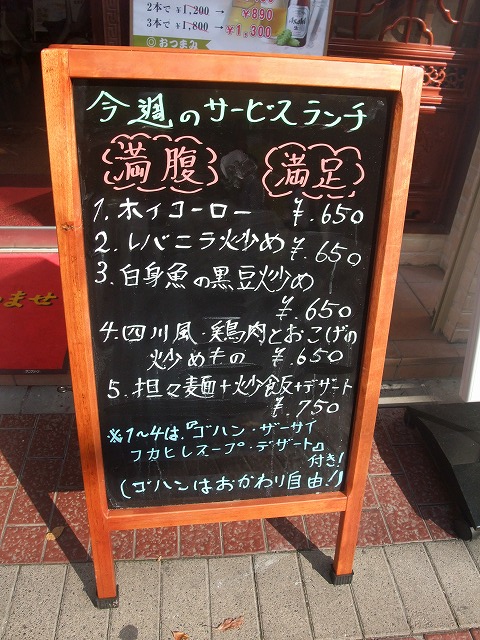 2本で ¥1,200 → ¥890
3本で ¥1,800 → ¥1,300
◎おつまみ
Asahi
今週のサービスランチ
満腹 満足
1. ホイコーロー ¥.650
2. レバニラ炒め ¥.650
3. 白身魚の黒豆炒め
¥.650
4. 四川風・鶏肉とおこげの
炒めもの ¥.650
5. 担々麺+炒飯+デザート
¥.750
※1〜4は、『ゴハン・ザーサイ
フカヒレスープ・デザート』
付き!
(ゴハンはおかわり自由!)
ませ